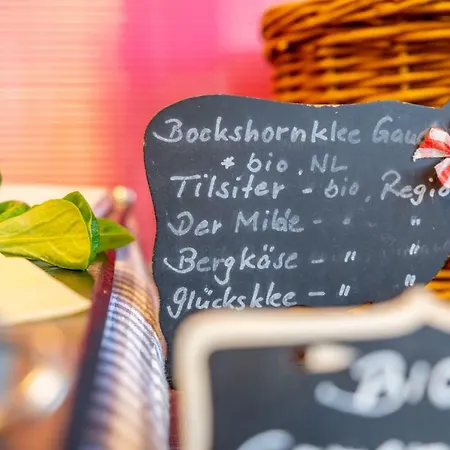 Bockshornklee Gaud
* bio, NL
Tilsiter - bio, Regio
Der Milde - " - "
Bergkäse - " "
Glücksklee - " "
BIO